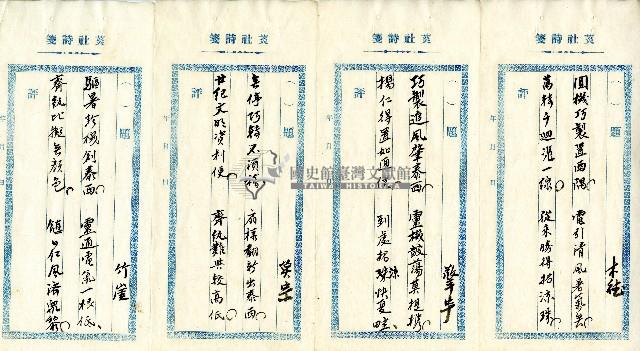 菼社詩箋
題
評
年 月 日
圓機巧製置西隅 電引清風暑氣無
萬轉千迴憑一線 從來勝得招涼珠
菼社詩箋
題
評
年 月 日
巧製追風肇泰西 靈機鼓蕩莫提攜
揚仁得置如通 到處招涼快夏畦
菼社詩箋
題
評
年 月 日
無停巧轉不須 扇樣翻新出泰西
世紀文明資利便 齊紈難與較高低
笑宗
菼社詩箋
題
評
年 月 日
驅暑機創泰西 靈通電氣一按低
齊紈比擬無顏色 鎮日仁風
竹崖
國史館臺灣文獻館
TAIWAN HISTORICA